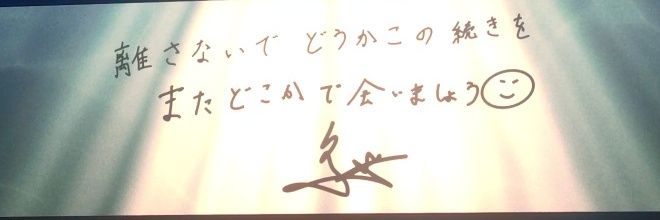 離さないで どうかこの続きを
またどこかで会いましょう